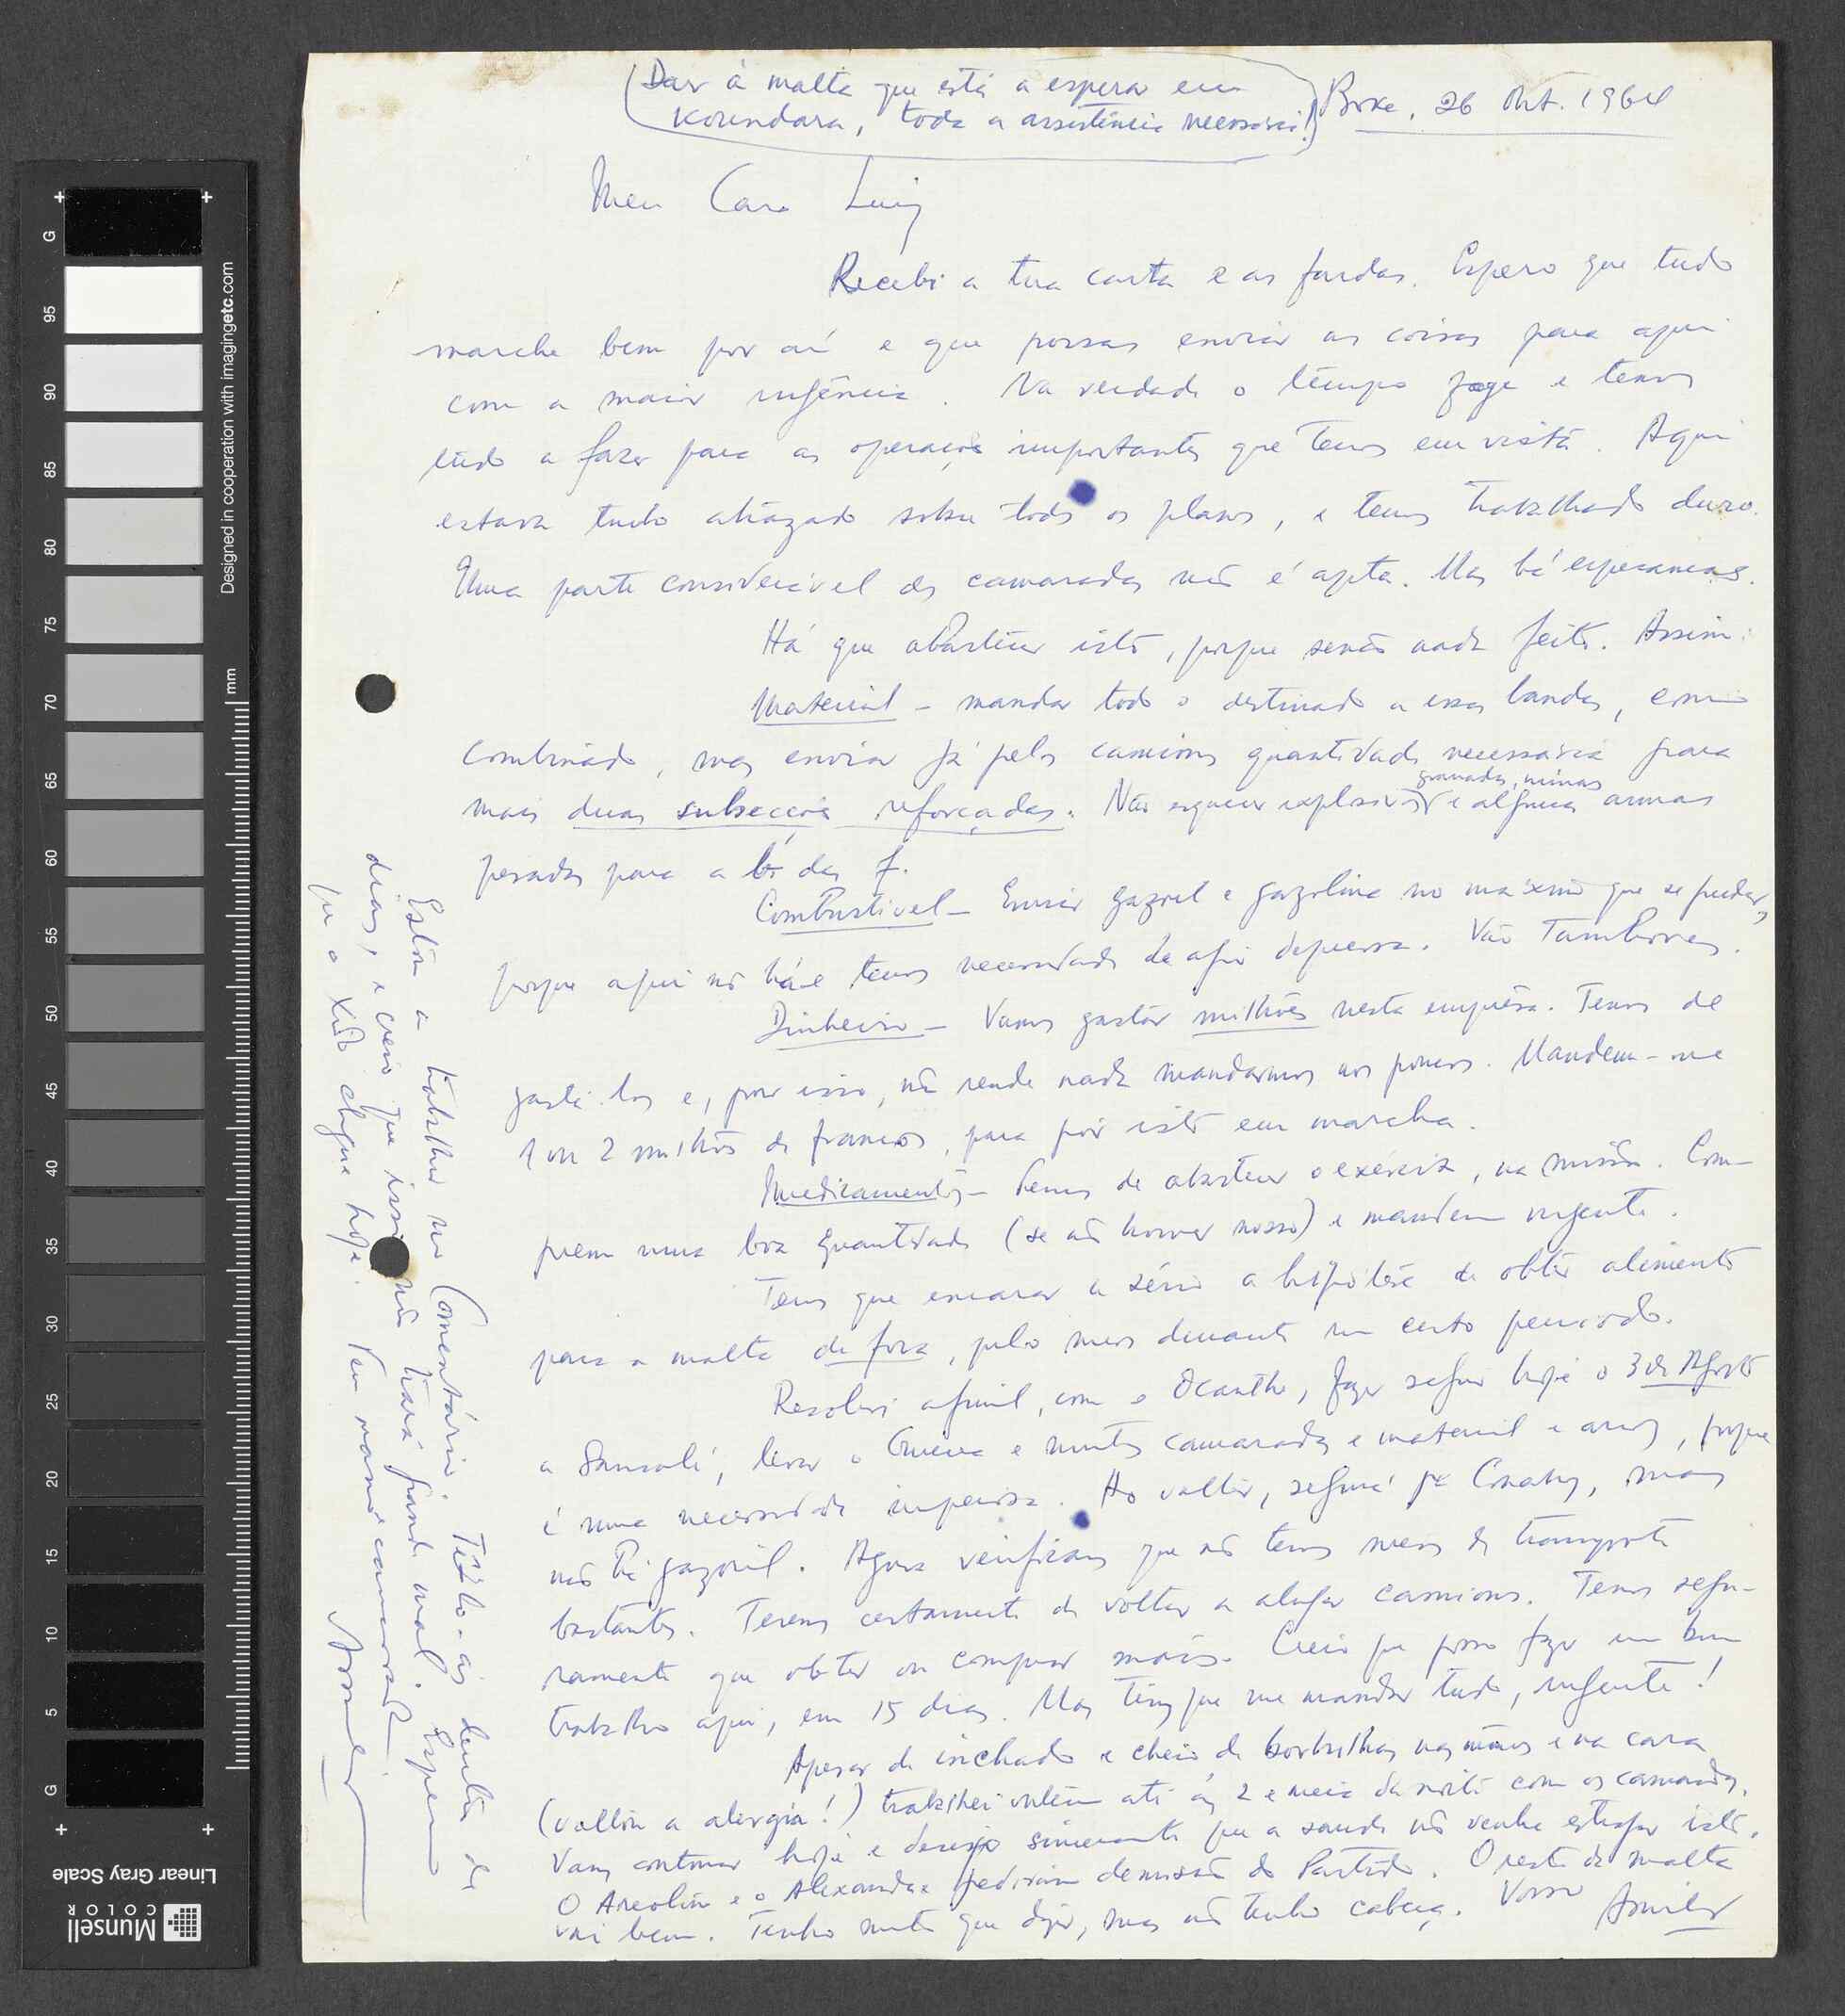 (Dar à malta que está a espera em
Korendara, toda a assistência necessária!)
Boke, 26 Out. 1964
Meu Caro Luiz
Recebi a tua carta e as fardas. Espero que tudo
marche bem por aí e que possas enviar as coisas para aqui
com a maior urgência. Na verdade o tempo foge e temos
tudo a fazer para as operações importantes que temos em vista. Aqui
estava tudo atrazado sobre todos os planos, e temos trabalhado duro.
Uma parte considerável dos camaradas não é apta. Mas há esperanças.
Há que abastecer isto, porque senão nada feito. Assim:
Material - mandar todo o destinado a essas bandas, como
combinado, mas enviar já pelos camions quantidade necessária para
mais duas subsecções reforçadas. Não esquecer explosivos, granadas, minas e algumas armas
pesadas para a das f.
Combustivel - Enviar gazoil e gazolina no máximo que se puder,
porque aqui não há e temos necessidade de agir depressa. Vão Tambores.
Dinheiro - Vamos gastar milhões nesta emprêsa. Temos de
gastá-los e, por isso, não rende nada mandarmos aos poucos. Mandem-me
1 ou 2 milhões de francos, para pôr isto em marcha.
Medicamentos - Temos de abastecer o exército, na missão. Com-
prem uma boa quantidade (se não houver nosso) e mandem urgente.
Temos que encarar a sério a hipótese de obter alimentos
para a malta de fora, pelo menos durante um certo periodo.
Resolvi afinal, com o Ocante, fazer seguir hoje o 3 de Agosto
a Sansalé, levar o e muitos camaradas e material e arroz, porque
é uma necessidade imperiosa. Ao voltar, seguirá pa Conakry, mas
não há gazoil. Agora verificamos que não temos meios de transporte
bastantes. Teremos certamente de voltar a alugar camions. Temos segu-
ramente que obter ou comprar mais. Creio que posso fazer um bom
trabalho aqui, em 15 dias. Mas têm que me mandar tudo, urgente!
Apesar de inchado e cheio de borbulhas nas mãos e na cara
(voltou a alergia!) trabalhei ontem até às 2 e meia da noite com os camaradas.
Vamos continuar hoje e desejo sinceramente que a saude não venha estragar isto.
O Areolino e o Alexandre pediram demissão do Partido. O resto da malta
vai bem. Tenho muito que dizer, mas não tenho cabeça. Vosso Amilcar
Estou a trabalhar no Comentário. Tê-lo-ás dentro de
dias, e creio que isso não trará grande mal. Espero
que o Xido chegue hoje. Teu mano e camarada
Amilcar
Designed in cooperation with imagingetc.com
mm
G
95
90
85
80
75
70
65
60
55
50
45
40
35
30
25
20
15
10
5
G
Linear Gray Scale
Munsell
COLOR